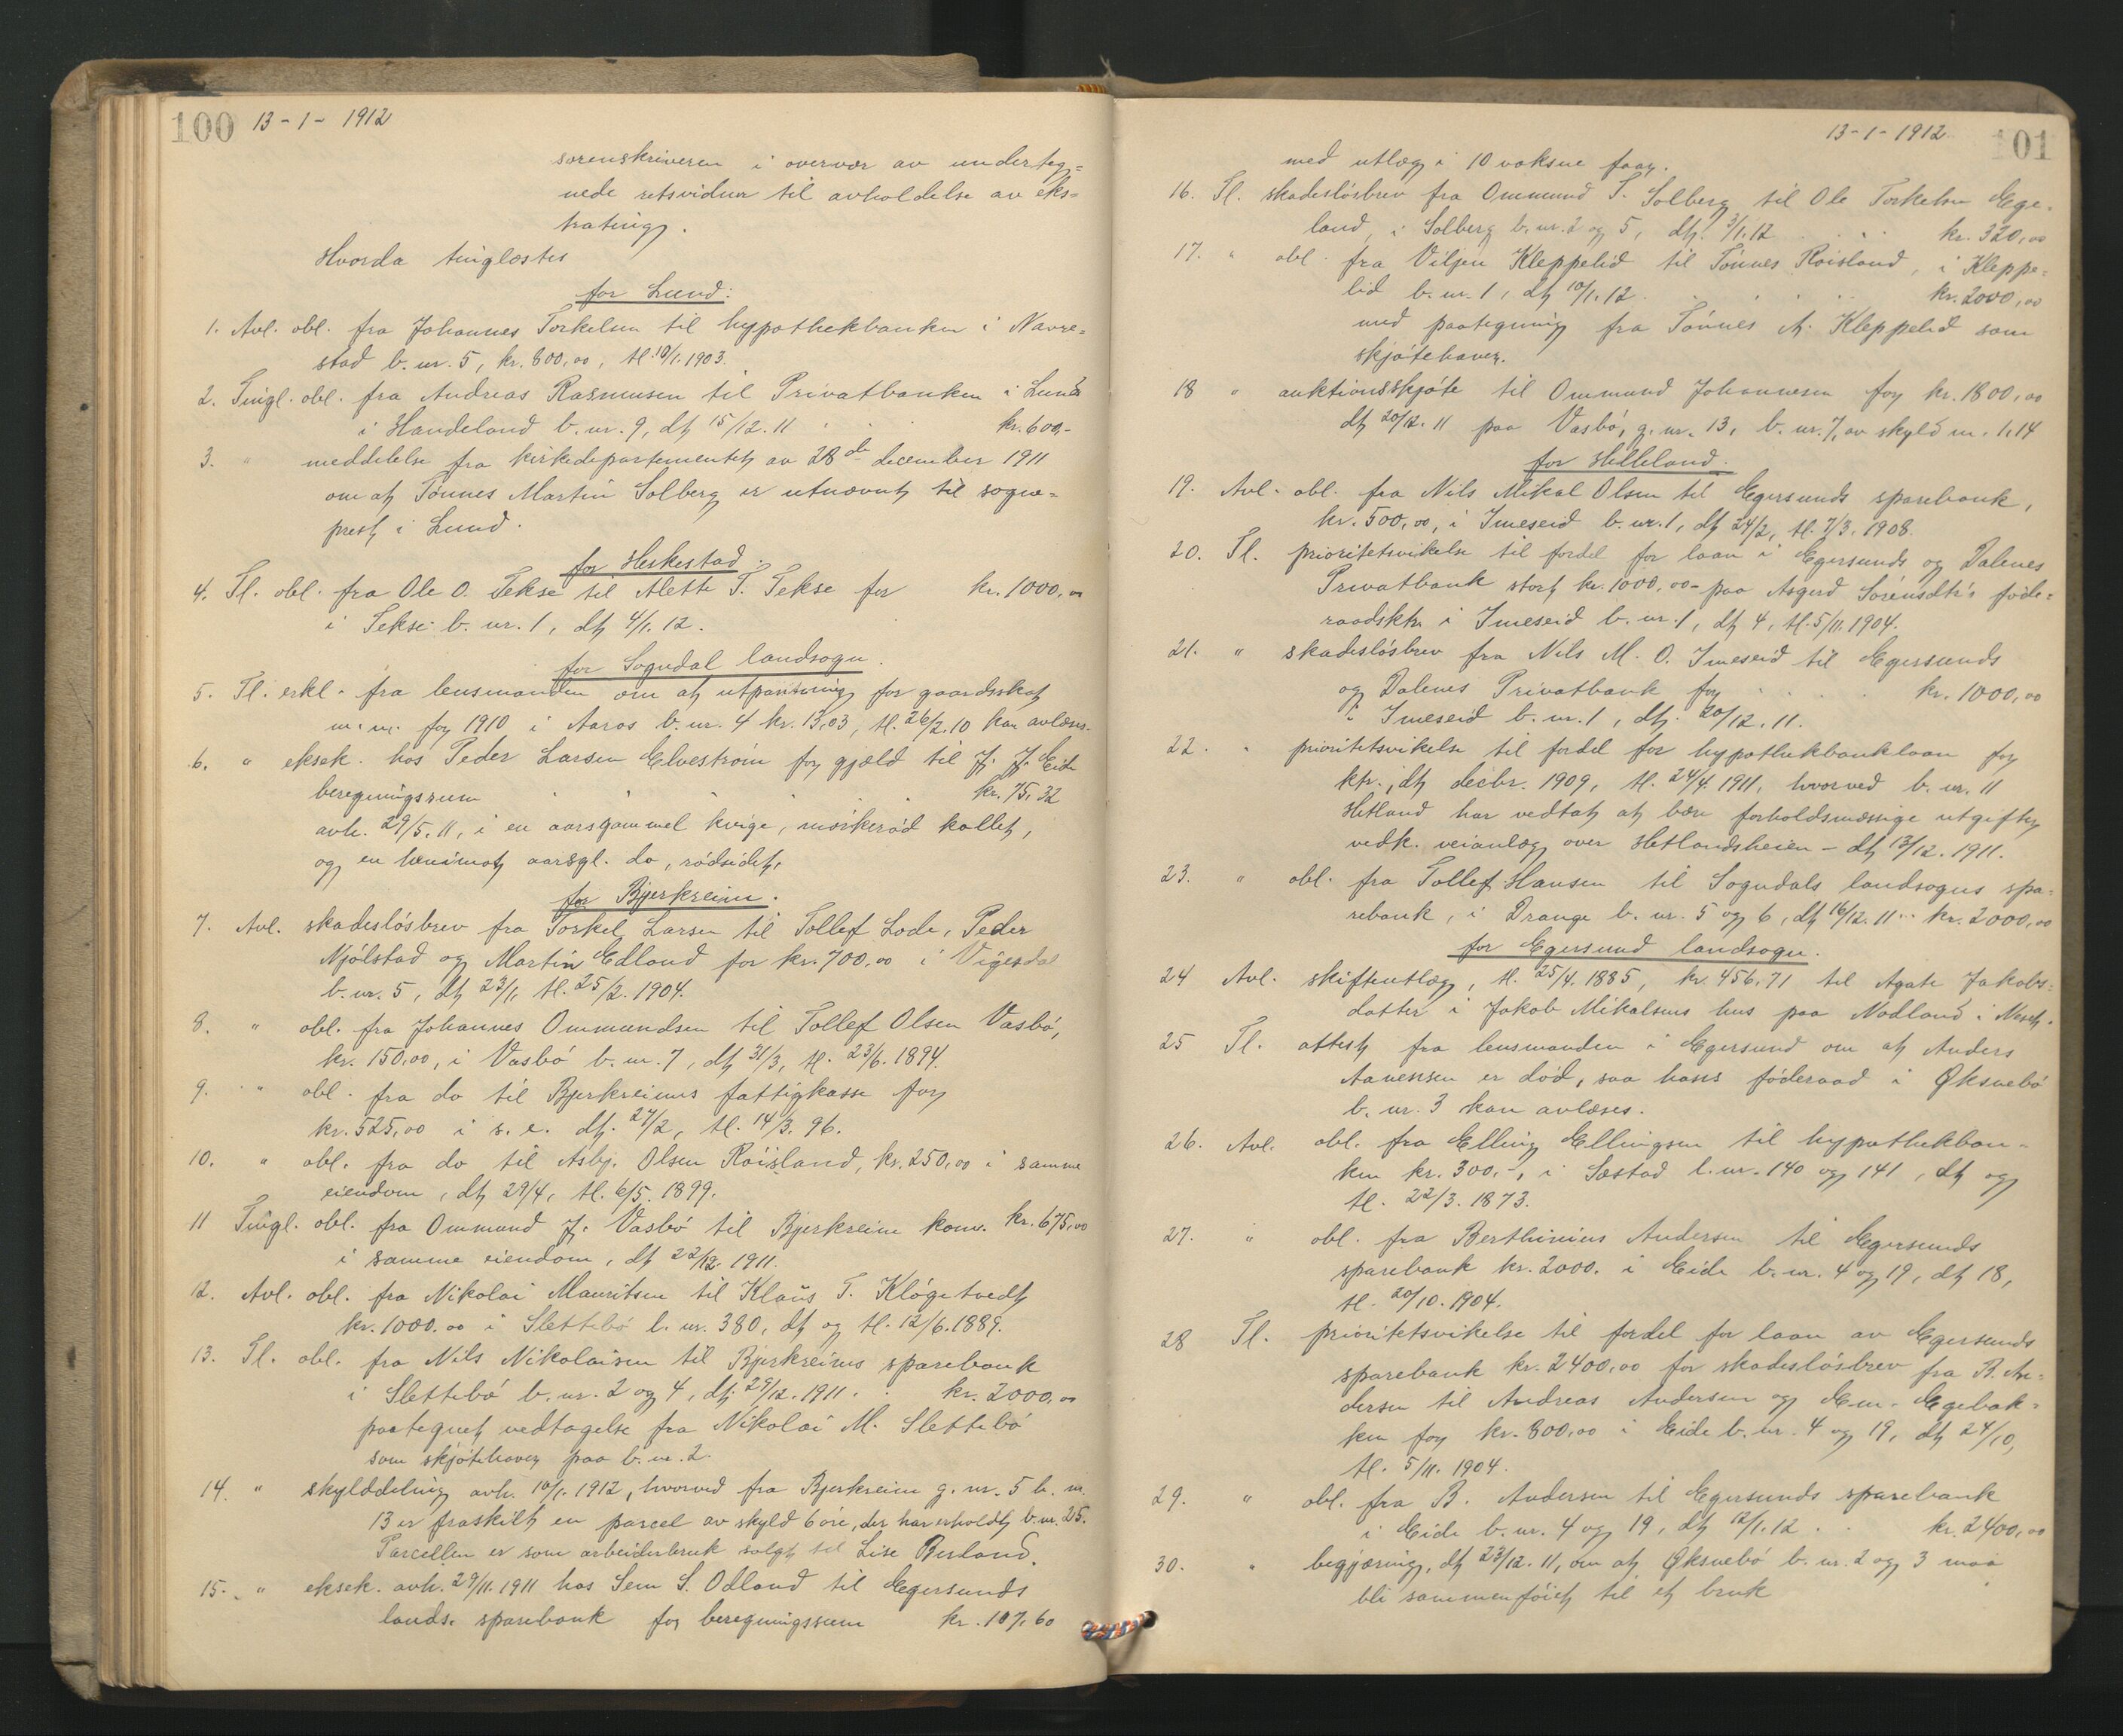 100 13-1-1912
sorenskriveren i overvær av underteg=
nede retsvidner til avholdelse av eks=
trating.
Hvorda tinglæstes
for Lund:
1. Avl. obl. fra Johannes Torkelsen til hypothekbanken i Navre=
stad b. nr. 5, kr. 800,00, tl. 10/1. 1903.
2. Tingl. obl. fra Andreas Rasmusen til Privatbanken i Lunde
i Handeland b. nr. 9, dt 15/12. 11 . . . kr. 600,-
3. " meddelelse fra kirkedepartementet av 28de december 1911
om at Tønnes Martin Solberg er utnævnt til sogne=
prest i Lund.
for Heskestad.
4. Tl. obl. fra Ole O. Tekse til Alette T. Tekse for kr. 1000,00
i Tekse b. nr. 1, dt 4/1. 12.
for Sogndal landsogn.
5. Tl. erkl. fra lensmanden om at utpantning for gaardsskat
m. m. for 1910 i Aaros b. nr. 4 kr. 13,03, tl. 26/2. 10 kan avlæses.
6. " eksek. hos Peder Larsen Elvestrøm for gjæld til J. J. Eide
beregningssum . . . . kr. 75,32
avh. 29/5. 11, i en aarsgammel kvige, mørkerød kollet,
og en henimot aarsgl. do, rødsidet,
for Bjerkreim.
7. Avl. skadesløsbrev fra Torkel Larsen til Tollef Lode, Peder
Mjølstad og Martin Edland for kr. 700,00 i Vigesdal
b. nr. 5, dt 23/1, tl. 25/2. 1904.
8. " obl. fra Johannes Ommundsen til Tollef Olsen Vasbø,
kr. 150,00, i Vasbø b. nr. 7, dt 31/3, tl. 23/6. 1894.
9. " obl. fra do til Bjerkreims fattigkasse for
kr. 525,00 i s. e. dt. 27/2, tl. 14/3. 96.
10. " obl. fra do til Asbj. Olsen Røisland, kr. 250,00 i samme
eiendom, dt 29/4, tl. 6/5. 1899.
11 Tingl. obl. fra Ommund J. Vasbø til Bjerkreim kom. kr. 675,00
i samme eiendom, dt 22/12. 1911.
12. Avl. obl. fra Nikolai Mauritsen til Klaus T. Kløgetvedt
kr. 1000.00 i Slettebø l. nr. 380, dt og tl. 12/6. 1889.
13. Tl. obl. fra Nils Nikolaisen til Bjerkreims sparebank
i Slettebø b. nr. 2 og 4, dt. 29/12. 1911. . kr. 2000,00
paategnet vedtagelse fra Nikolai M. Slettebø
som skjøtehaver paa b. nr. 2.
14. " skylddeling avh. 10/1. 1912, hvorved fra Bjerkreim g. nr. 5 b. nr.
13 er fraskilt en parcel av skyld 6 øre, der har erholdt b. nr. 25.
Parcellen er som arbeiderbruk solgt til Lise Berland.
15. " eksek. avh. 29/11. 1911 hos Sem S. Odland til Egersunds
lands. sparebank for beregningssum kr. 107,60
13-1-1912 101
med utlæg i 10 voksne faar.
16. Tl. skadesløsbrev fra Ommund T. Solberg til Ole Torkelsen Ege-
land, i Solberg b. nr. 2 og 5, dt. 3/1. 12 . . . kr. 320,00
17. " obl. fra Viljen Kleppelid til Tønnes Røisland, i Kleppe=
lid b. nr. 1, dt 10/1. 12. . . . . kr. 2000,00
med paategning fra Tønnes A. Kleppelid som
skjøtehaver.
18 " auktionsskjøte til Ommund Johannesen for kr. 1800,00
dt 20/12. 11 paa Vasbø, g. nr. 13, b. nr. 7, av skyld m. 1,14
for Helleland.
19. Avl. obl. fra Nils Mikal Olsen til Egersunds sparebank,
kr. 500,00, i Imeseid b. nr. 1, dt 24/2, tl. 7/3. 1908.
20. Tl. prioritetsvikelse til fordel for laan i Egersunds og Dalenes
Privatbank stort kr. 1000,00- paa Asgerd Sørensdtr's føde=
raadsktr. i Imeseid b. nr. 1, dt 4, tl. 5/11. 1904.
21. " skadesløsbrev fra Nils M. O. Imeseid til Egersunds
og Dalenes Privatbank for . . . . kr. 1000,00
i Imeseid b. nr. 1, dt. 20/12. 11.
22. " prioritetsvikelse til fordel for hypothekbanklaan for
ktr., dt decbr. 1909, tl. 24/4. 1911, hvorved b. nr. 11
Hetland har vedtat at bære forholdsmæssige utgifter
vedk. veianlæg over Hetlandsheien - dt 13/12. 1911.
23. " obl. fra Tollef Hansen til Sogndals landsogns spa=
rebank, i Drange b. nr. 5 og 6, dt 16/12. 11... kr. 2000,00
for Egersund landsogn.
24 Avl. skifteutlæg, tl. 25/4. 1885, kr. 456,71 til Agate Jakobs=
datter i Jakob Mikalsens hus paa Nodland i
25 Tl. attest fra lensmanden i Egersund om at Anders
Aanensen er død, saa hans føderaad i Øksnebø
b. nr. 3 kan avlæses.
26. Avl. obl. fra Elling Ellingsen til hypothekban-
ken kr. 300,-, i Sæstad l. nr. 140 og 141, dt og
tl. 22/3. 1873.
27. " obl. fra Berthinius Andersen til Egersunds
sparebank kr. 2000. i Eide b. nr. 4 og 19, dt 18,
tl. 20/10. 1904.
28 Tl. prioritetsvikelse til fordel for laan av Egersunds
sparebank kr. 2400,00 for skadesløsbrev fra B. An=
dersen til Andreas Andersen og Em. Egebak=
ken for kr. 800,00 i Eide b. nr. 4 og 19, dt 24/10,
tl. 5/11. 1904.
29. " obl. fra B. Andersen til Egersunds sparebank
i Eide b. nr. 4 og 19, dt 12/1. 12 . . kr. 2400,00
30. " begjæring, dt 23/12. 11, om at Øksnebø b. nr. 2 og 3 maa
bli sammenføiet til et bruk